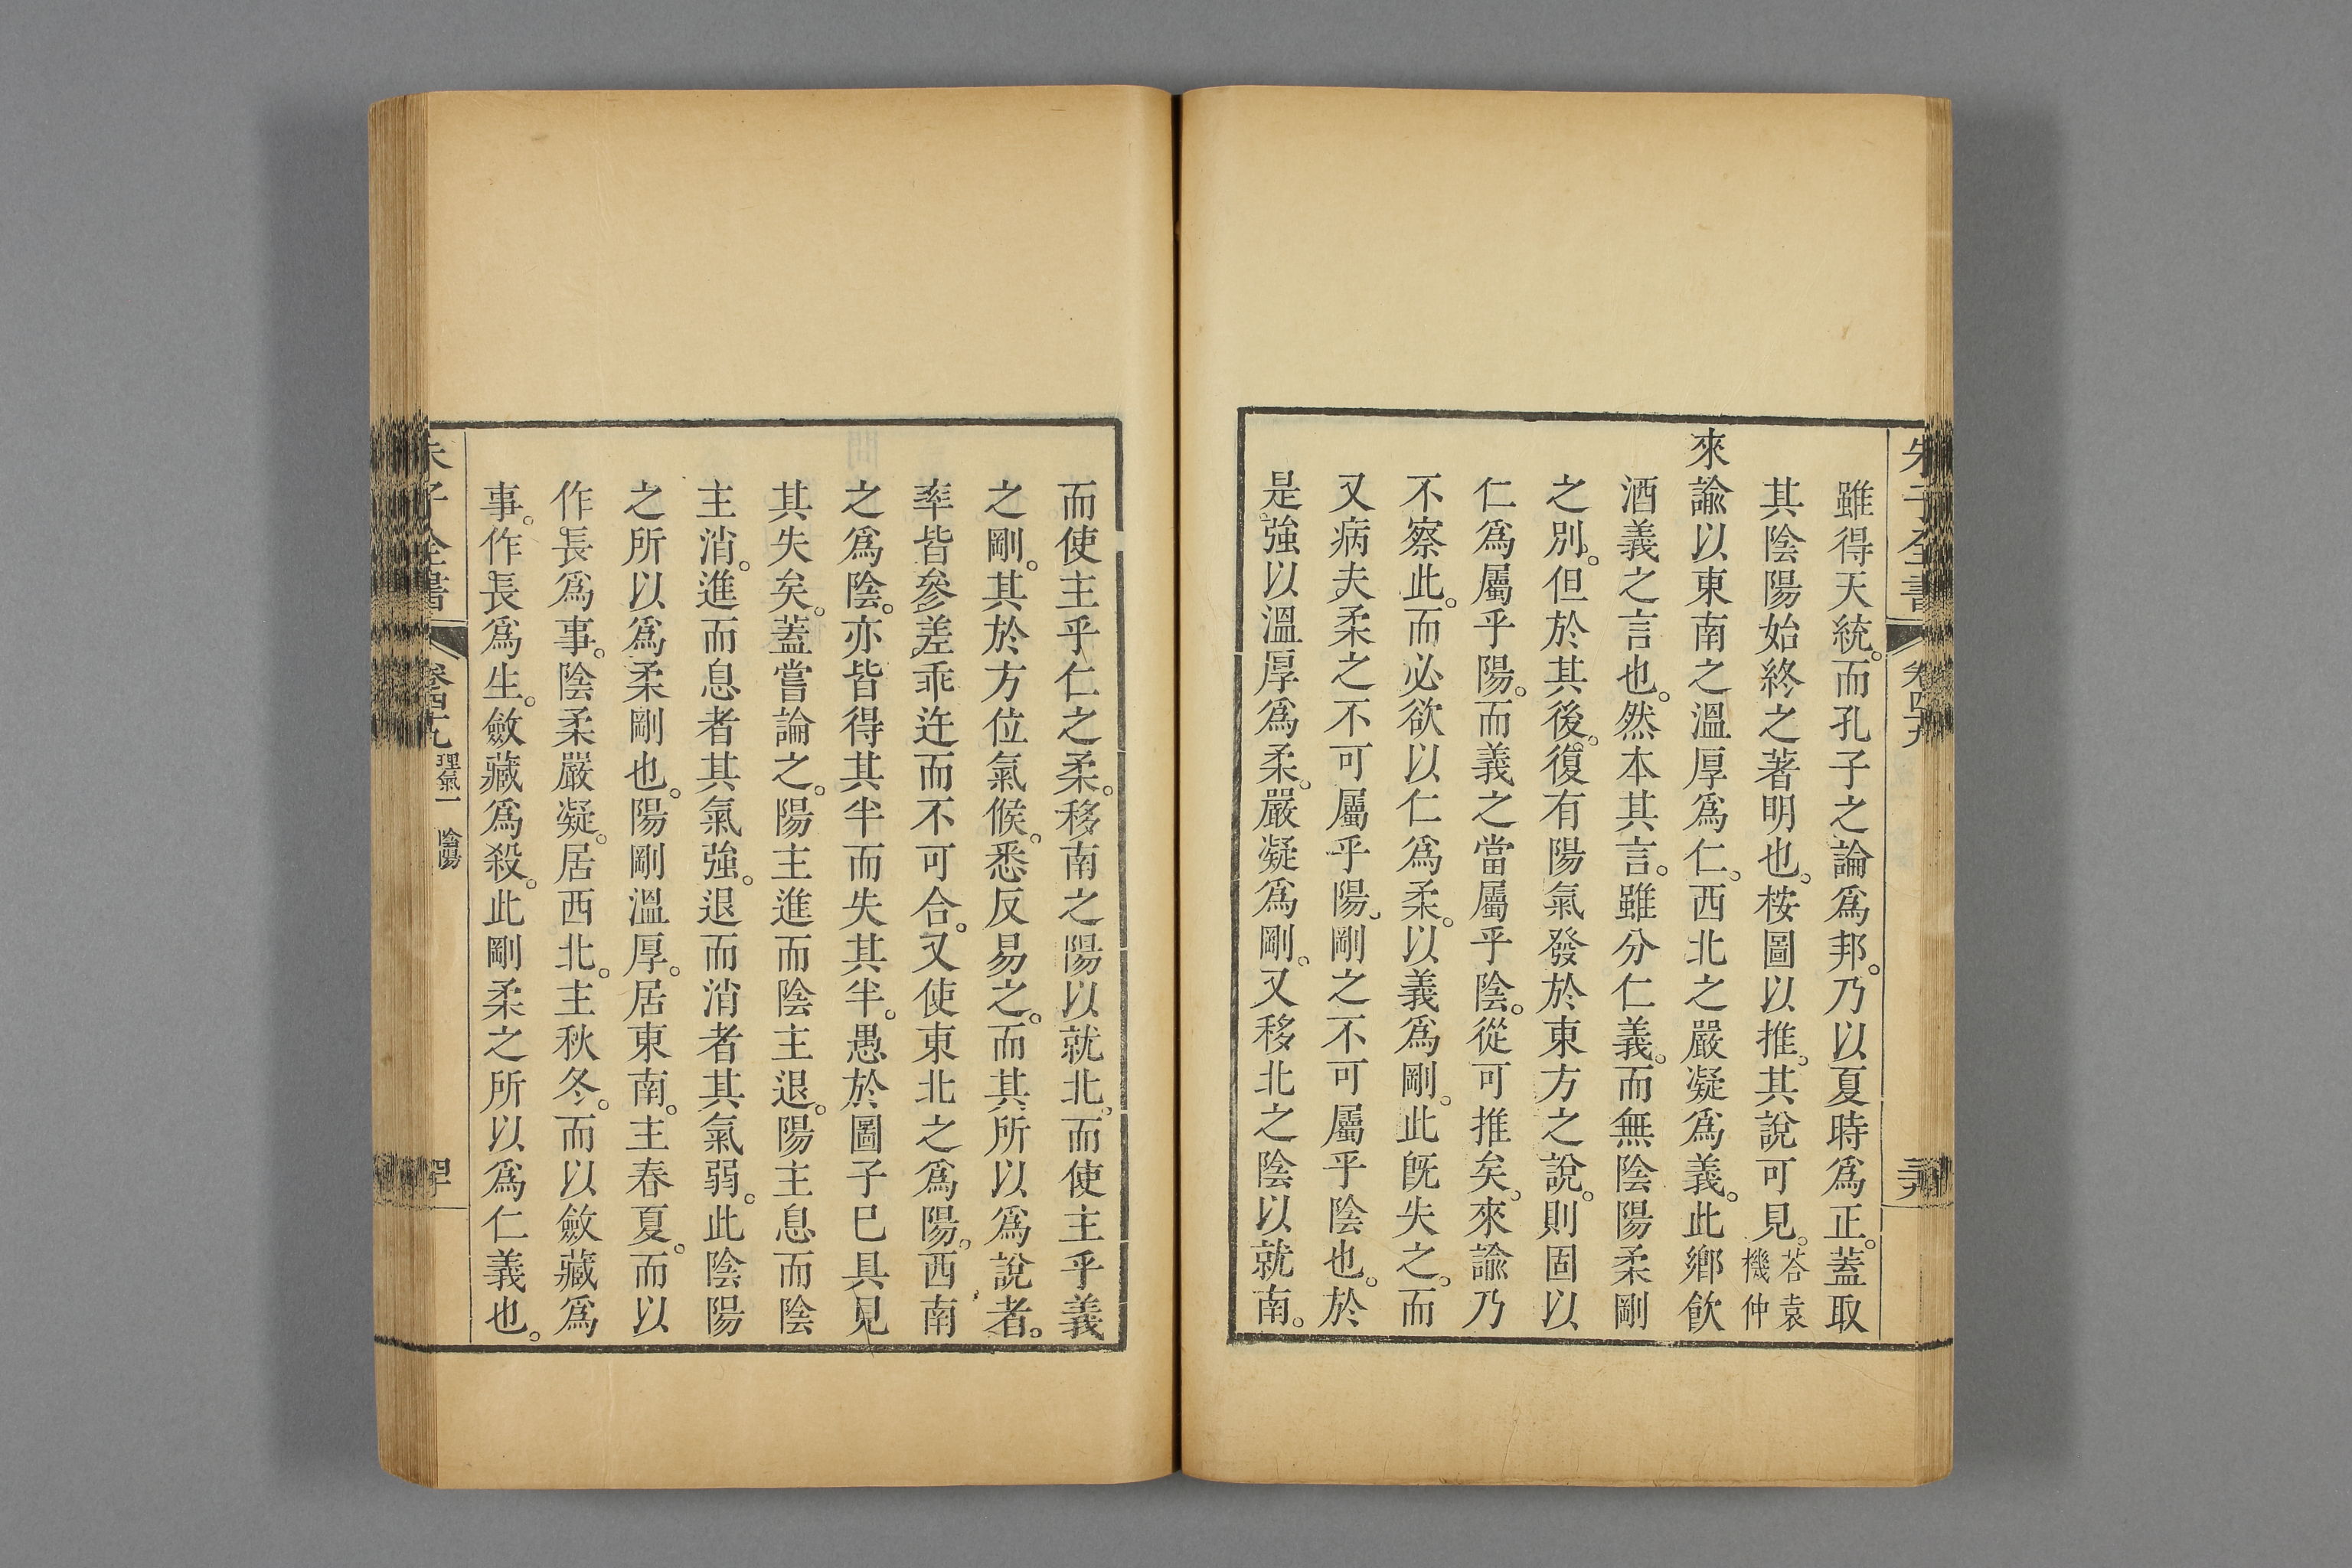 朱子全書 卷四十九
雖得天統。而孔子之論爲邦。乃以夏時爲正。蓋取
其陰陽始終之著明也。按圖以推。其說可見。荅袁機仲
來諭以東南之溫厚爲仁。西北之嚴凝爲義。此鄉飮
酒義之言也。然本其言。雖分仁義。而無陰陽柔剛
之別。但於其後。復有陽氣發於東方之說。則固以
仁爲屬乎陽。而義之當屬乎陰。從可推矣。來諭乃
不察此。而必欲以仁爲柔。以義爲剛。此旣失之。而
又病夫柔之不可屬乎陽。剛之不可屬乎陰也。於
是。強以溫厚爲柔。嚴凝爲剛。又移北之陰以就南。
而使主乎仁之柔。移南之陽以就北。而使主乎義
之剛。其於方位氣候。悉反易之。而其所以爲說者。
率皆參差乖迕而不可合。又使東北之爲陽。西南
之爲陰。亦皆得其半而失其半。愚於圖子巳具見
其失矣。蓋嘗論之。陽主進而陰主退。陽主息而陰
主消。進而息者其氣強。退而消者其氣弱。此陰陽
之所以爲柔剛也。陽剛溫厚。居東南。主春夏。而以
作長爲事。陰柔嚴凝。居西北。主秋冬。而以斂藏爲
事。作長爲生。斂藏爲殺。此剛柔之所以爲仁義也。
朱子全書 卷四十九 理氣一 陰陽